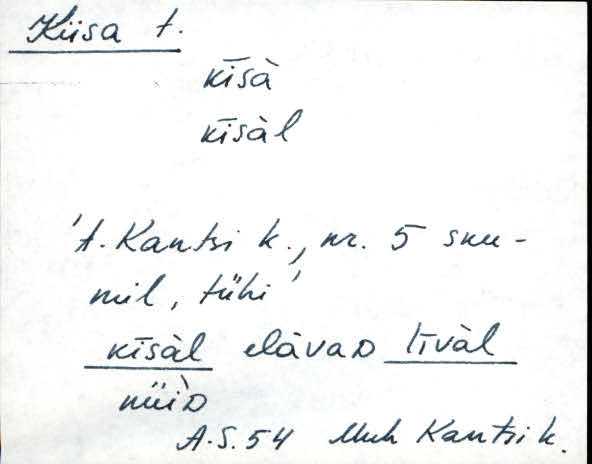 Kiisa t.
kīsà
kīsàl
't. Kantsi k., nr. 5 suu-
mil, tühi'
kīsàl elàvaD līvàl
nüìD
A.S. 54 Muh Kantsi k.